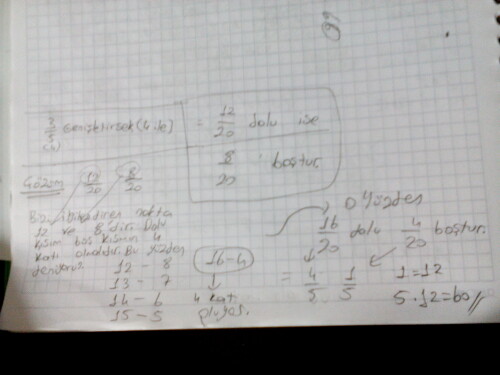 3/5 genişletirsek (4 ile) = 12/20 dolu ise
(4)
8/20 boştur.
Çözüm 12/20 8/20
Bizi ilgilendiren nokta
12 ve 8 dir. Dolu
kısım boş kısmın 4
katı olmalıdır. Bu yüzden
deniyoruz.
12 - 8
13 - 7
14 - 6
15 - 5
16-4
4 kat
O yüzden
16/20 dolu 4/20 boştur.
= 4/5 1/5
1=12
5.12=60//